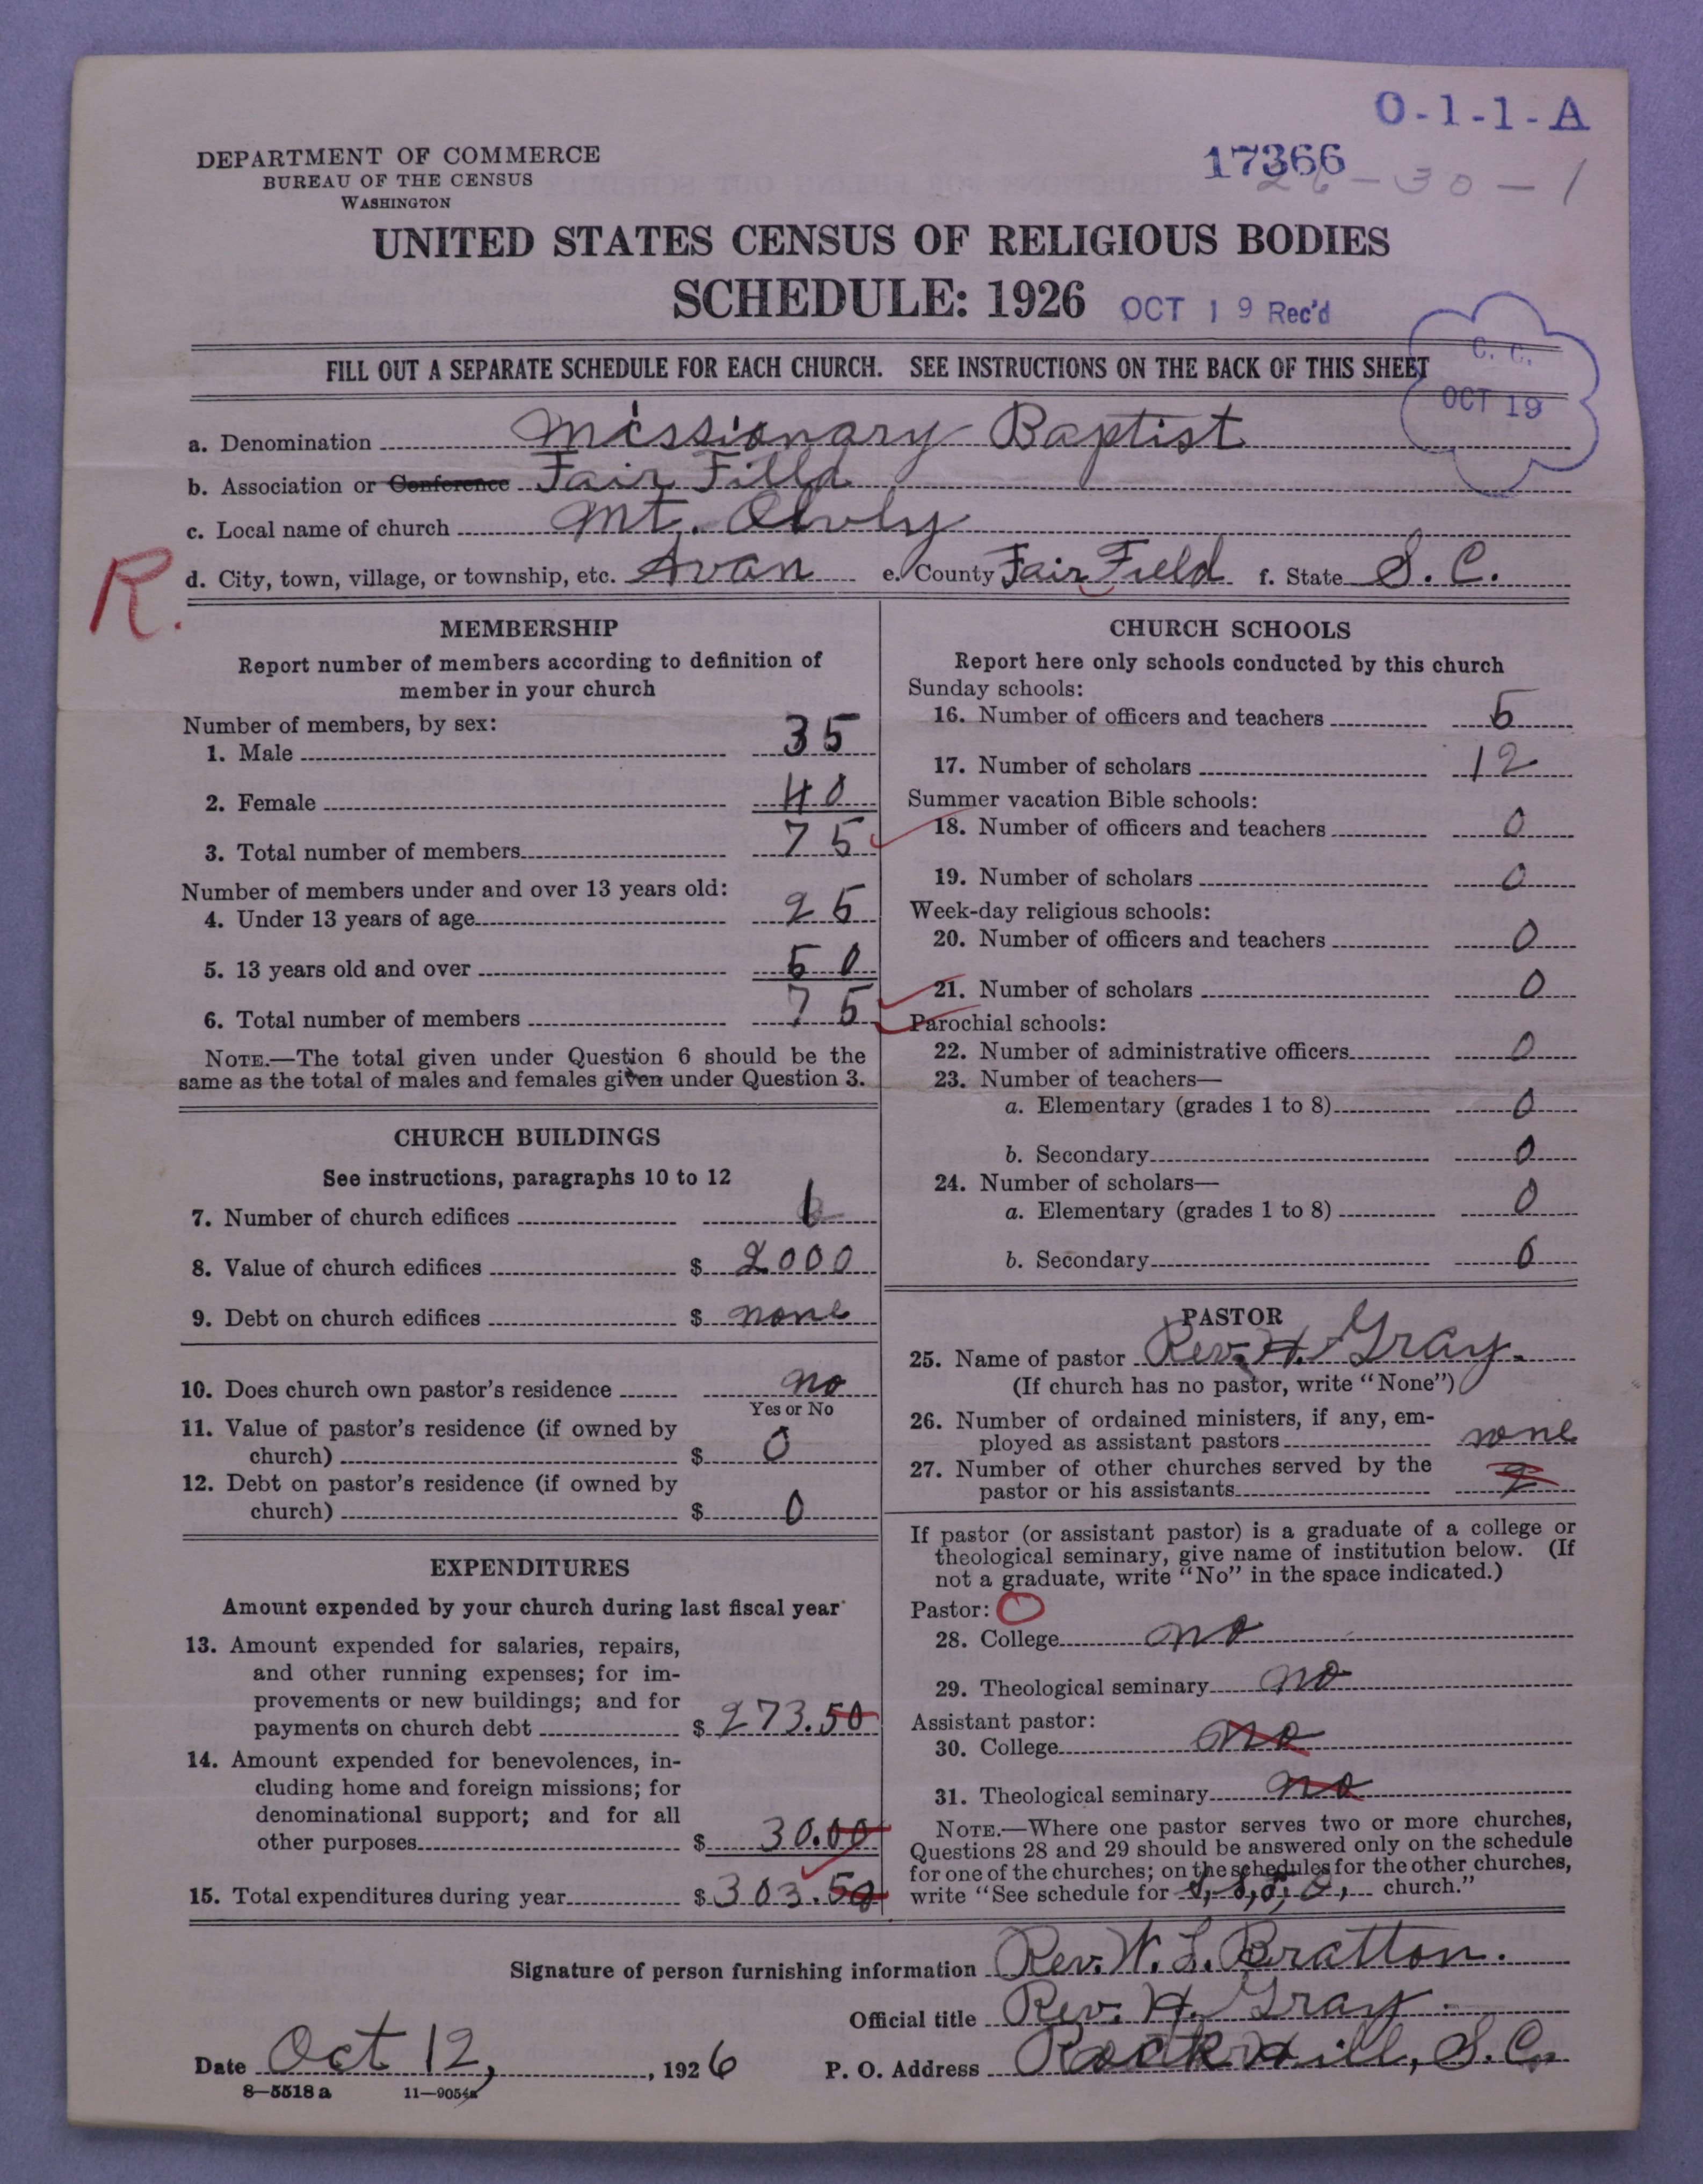 O-1-1-A
DEPARTMENT OF COMMERCE
BUREAU OF THE CENSUS
WASHINGTON
17366
26-30-1
UNITED STATES CENSUS OF RELIGIOUS BODIES
SCHEDULE: 1926 OCT 19 Rec'd
FILL OUT A SEPARATE SCHEDULE FOR EACH CHURCH. SEE INSTRUCTIONS ON THE BACK OF THIS SHEET
C. C.
OCT 19
a. Denomination Missionary Baptist
b. Association or Conference Fair Filld
c. Local name of church Mt.
R.
d. City, town, village, or township, etc. Avan e. County Fair Field f. State S. C.
MEMBERSHIP
Report number of members according to definition of
member in your church
Number of members, by sex:
1. Male 35
2. Female 40
3. Total number of members 75
Number of members under and over 13 years old:
4. Under 13 years of age 25
5. 13 years old and over 50
6. Total number of members 75
NOTE.—The total given under Question 6 should be the
same as the total of males and females given under Question 3.
CHURCH BUILDINGS
See instructions, paragraphs 10 to 12
7. Number of church edifices 1
8. Value of church edifices $ 2000
9. Debt on church edifices $ none
10. Does church own pastor's residence no
Yes or No
11. Value of pastor's residence (if owned by
church) $ 0
12. Debt on pastor's residence (if owned by
church) $ 0
EXPENDITURES
Amount expended by your church during last fiscal year
13. Amount expended for salaries, repairs,
and other running expenses; for im-
provements or new buildings; and for
payments on church debt $ 273.50
14. Amount expended for benevolences, in-
cluding home and foreign missions; for
denominational support; and for all
other purposes $ 30.00
15. Total expenditures during year $ 303.50
CHURCH SCHOOLS
Report here only schools conducted by this church
Sunday schools:
16. Number of officers and teachers 5
17. Number of scholars 12
Summer vacation Bible schools:
18. Number of officers and teachers 0
19. Number of scholars 0
Week-day religious schools:
20. Number of officers and teachers 0
21. Number of scholars 0
Parochial schools:
22. Number of administrative officers 0
23. Number of teachers—
a. Elementary (grades 1 to 8) 0
b. Secondary 0
24. Number of scholars—
a. Elementary (grades 1 to 8) 0
b. Secondary 0
PASTOR
25. Name of pastor Rev. H. Gray.
(If church has no pastor, write "None")
26. Number of ordained ministers, if any, em-
ployed as assistant pastors none
27. Number of other churches served by the
pastor or his assistants 2
If pastor (or assistant pastor) is a graduate of a college or
theological seminary, give name of institution below. (If
not a graduate, write "No" in the space indicated.)
Pastor:
28. College no
29. Theological seminary no
Assistant pastor:
30. College no
31. Theological seminary no
NOTE.—Where one pastor serves two or more churches,
Questions 28 and 29 should be answered only on the schedule
for one of the churches; on the schedules for the other churches,
write "See schedule for church."
Signature of person furnishing information Rev. W. L. Bratton.
Official title Rev. H. Gray.
Date Oct 12, , 1926 P. O. Address Rock Hill, S.C.
8-5518 a 11-9054a